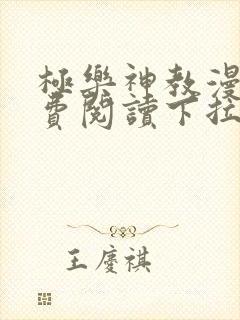 極樂神教漫
費閱讀下拉
王慶祺